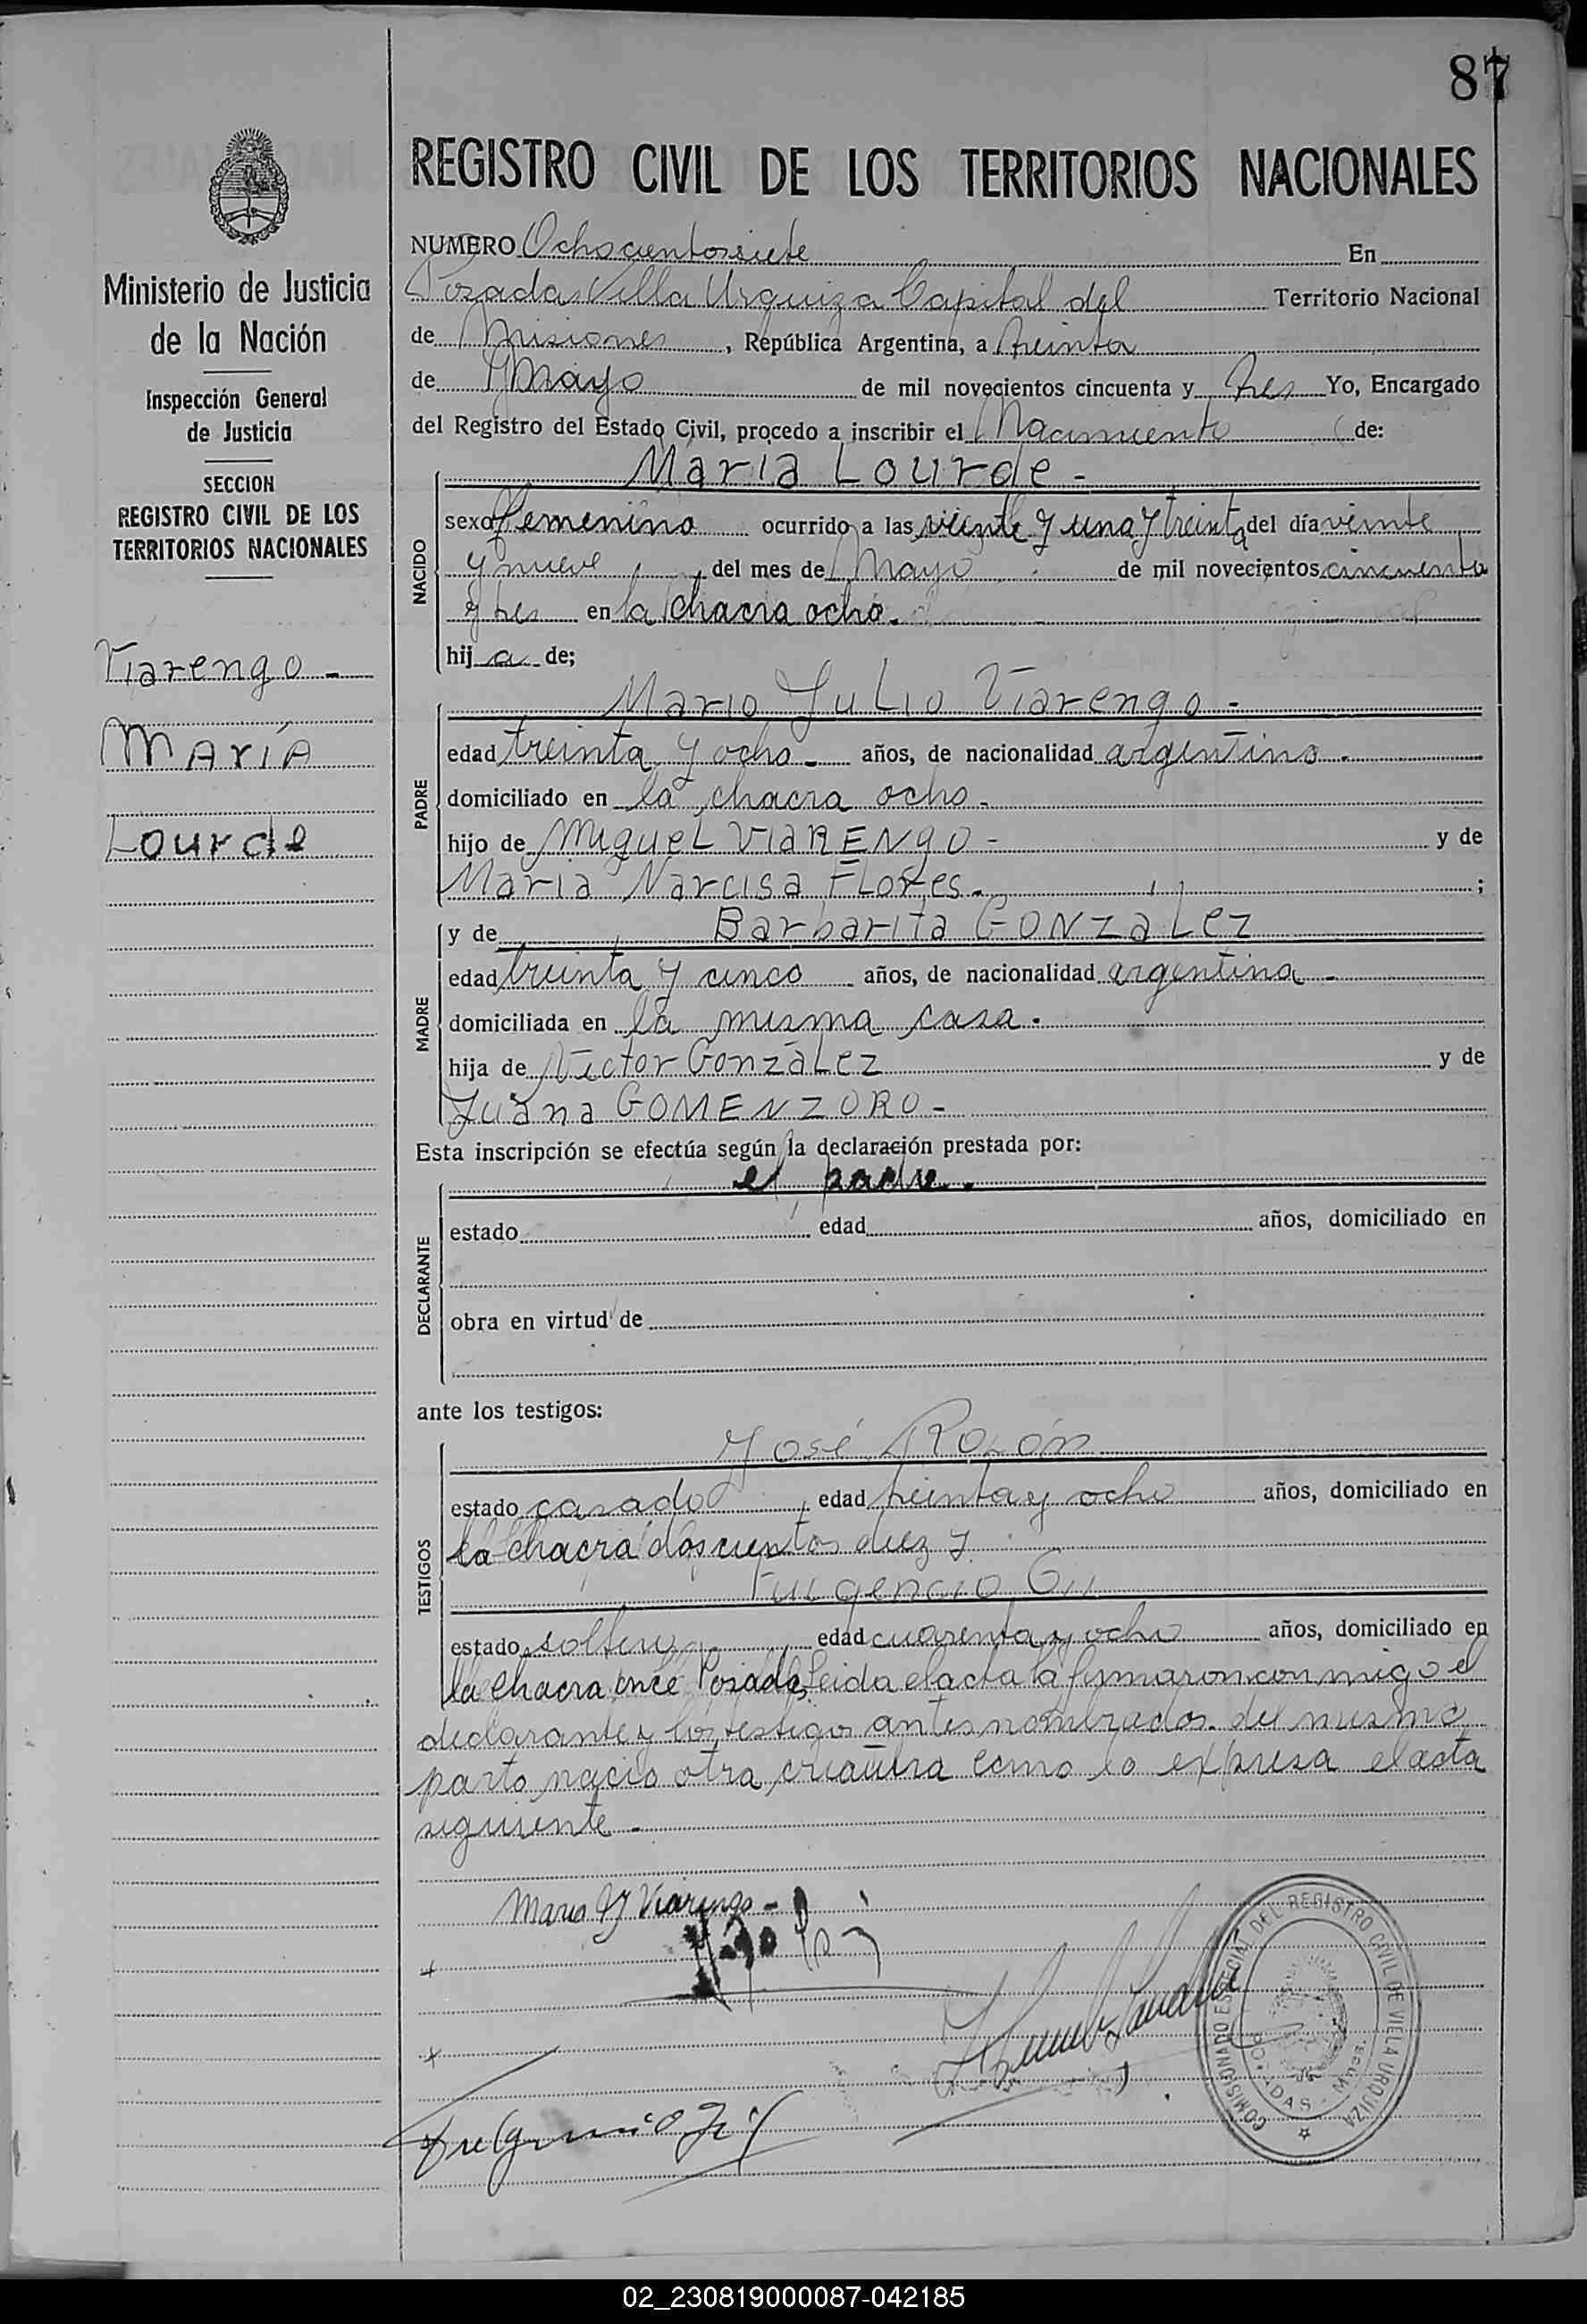 87
REGISTRO CIVIL DE LOS TERRITORIOS NACIONALES
Ministerio de Justicia
de la Nación
Inspección General
de Justicia
SECCION
REGISTRO CIVIL DE LOS
TERRITORIOS NACIONALES
Viarengo -
MARÍA
Lourde
NUMERO Ochocientos siete En
Posadas Villa Urquiza Capital del Territorio Nacional
de Misiones, República Argentina, a treinta
de Mayo de mil novecientos cincuenta y tres Yo, Encargado
del Registro del Estado Civil, procedo a inscribir el Nacimiento de:
NACIDO
María Lourde -
sexo femenino ocurrido a las veinte y una y treinta del día veinte
y nueve del mes de Mayo de mil novecientos cincuenta
y tres en la chacra ocho.
hija de;
PADRE
Mario Julio Viarengo -
edad treinta y ocho - años, de nacionalidad argentino -
domiciliado en la chacra ocho -
hijo de Miguel VIARENGO - y de
María Narcisa Flores - ;
MADRE
y de Barbarita GONZALEZ
edad treinta y cinco años, de nacionalidad argentina -
domiciliada en la misma casa -
hija de Víctor González y de
Juana GOMENZORO -
Esta inscripción se efectúa según la declaración prestada por:
DECLARANTE
el padre.
estado edad años, domiciliado en
obra en virtud de
ante los testigos:
TESTIGOS
José Rolón
estado casado edad treinta y ocho años, domiciliado en
la chacra doscientos diez y
Fulgencio Gil
estado soltero edad cuarenta y ocho años, domiciliado en
la chacra once Posadas, Leida el acta la firmaron conmigo el
declarante y los testigos antes nombrados. del mismo
parto nació otra criatura como lo expresa el acta
siguiente -
Mario J Viarengo -
Fulgencio Gil
COMISIONADO ESPECIAL DEL REGISTRO CIVIL DE VILLA URQUIZA
02_230819000087-042185